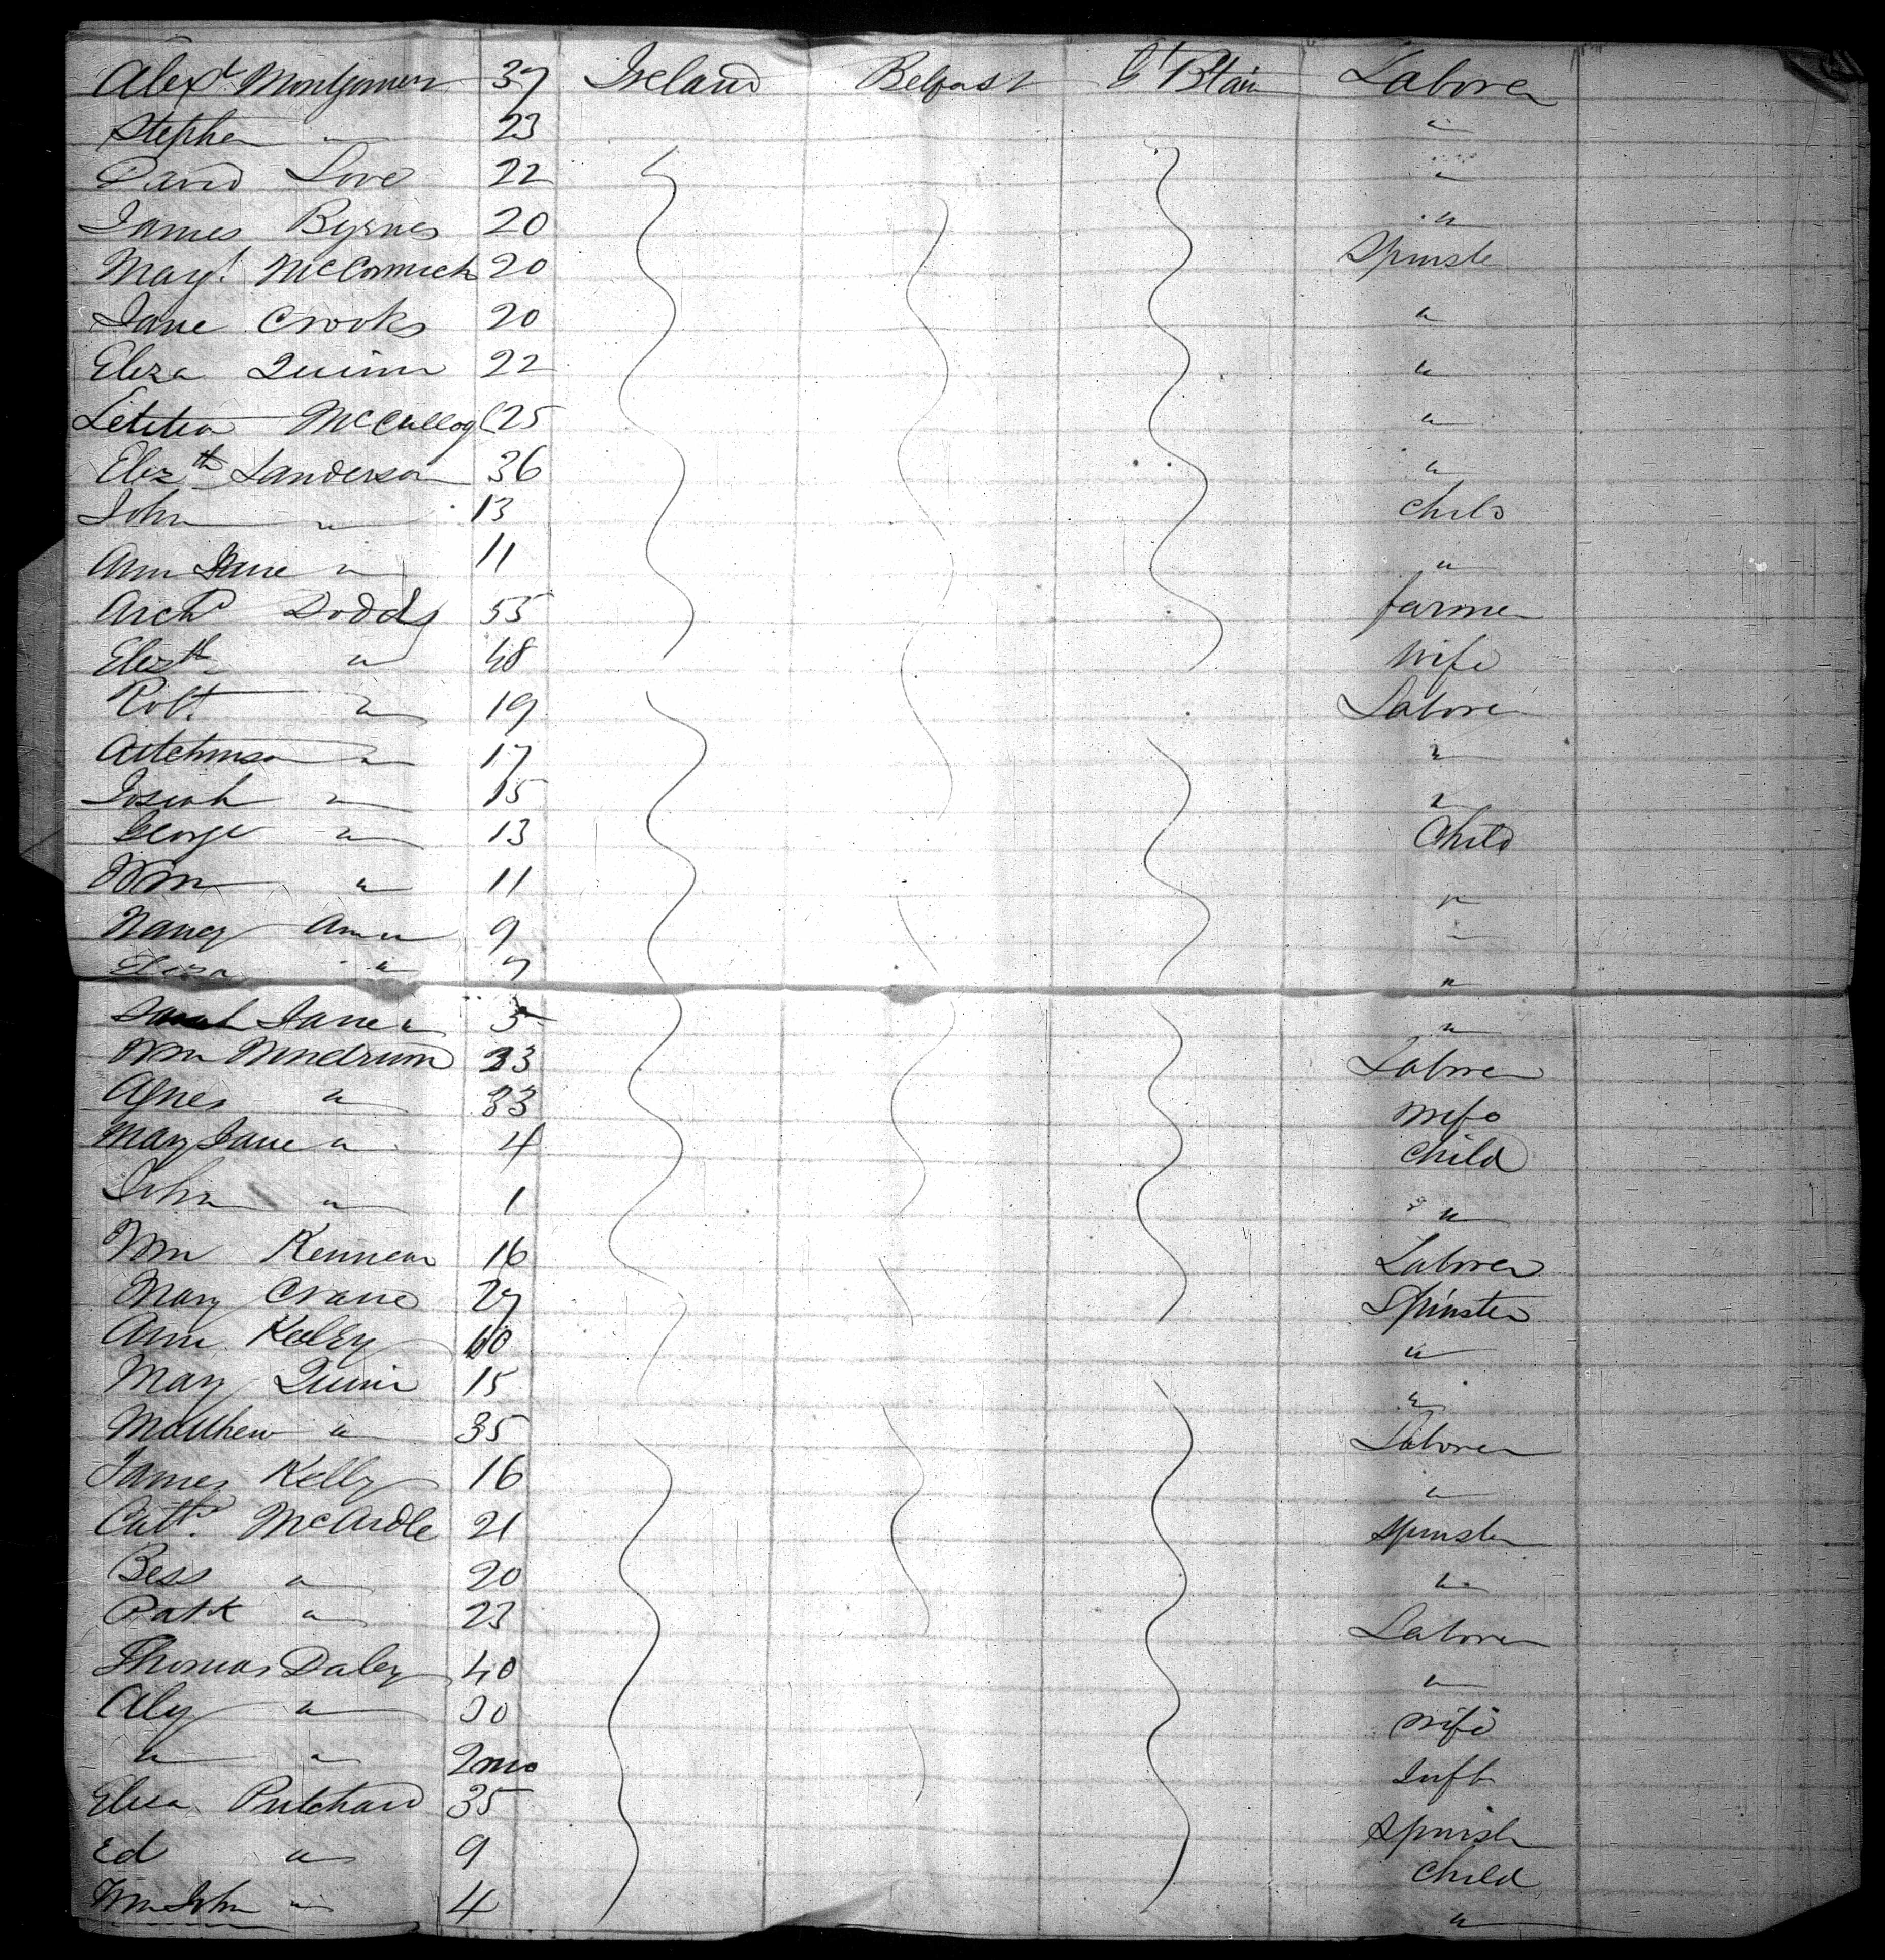 Alexr Montgomery 37 Ireland Belfast Gt Btain Laborer
Stephen " 23 "
David Love 22 "
James Byrnes 20 "
Mayt. McCormick 20 Spinster
Jane Crooks 20 "
Eliza Quinn 22 "
Letitia McCullog 25 "
Elizth Sanderson 36 "
John " 13 Child
Ann Jane " 11 "
Archd Dodds 55 farmer
Elizth " 48 Wife
Robt. " 19 Laborer
Aitchinson " 17 "
Josiah " 15 "
George " 13 Child
Wm " 11 "
Nancy Ann " 9 "
Eliza " 7 "
Sarah Jane " 5 "
Wm 33 Laborer
Agnes " 33 Wife
Mary Jane " 4 Child
John " 1 "
Wm Kennean 16 Laborer
Mary Crane 27 Spinster
Ann Kelly "
Mary Quinn 15 "
Matthew " 35 Laborer
James Kelly 16 "
Cathe. McArdle 21 Spinster
Bess " 20 "
Patk " 23 Laborer
Thomas Daley 40 "
Aly " 30 Wife
" " 2mo Inft
Eliza Pritchard 35 Spinster
Ed " 9 Child
Wm John " 4 "